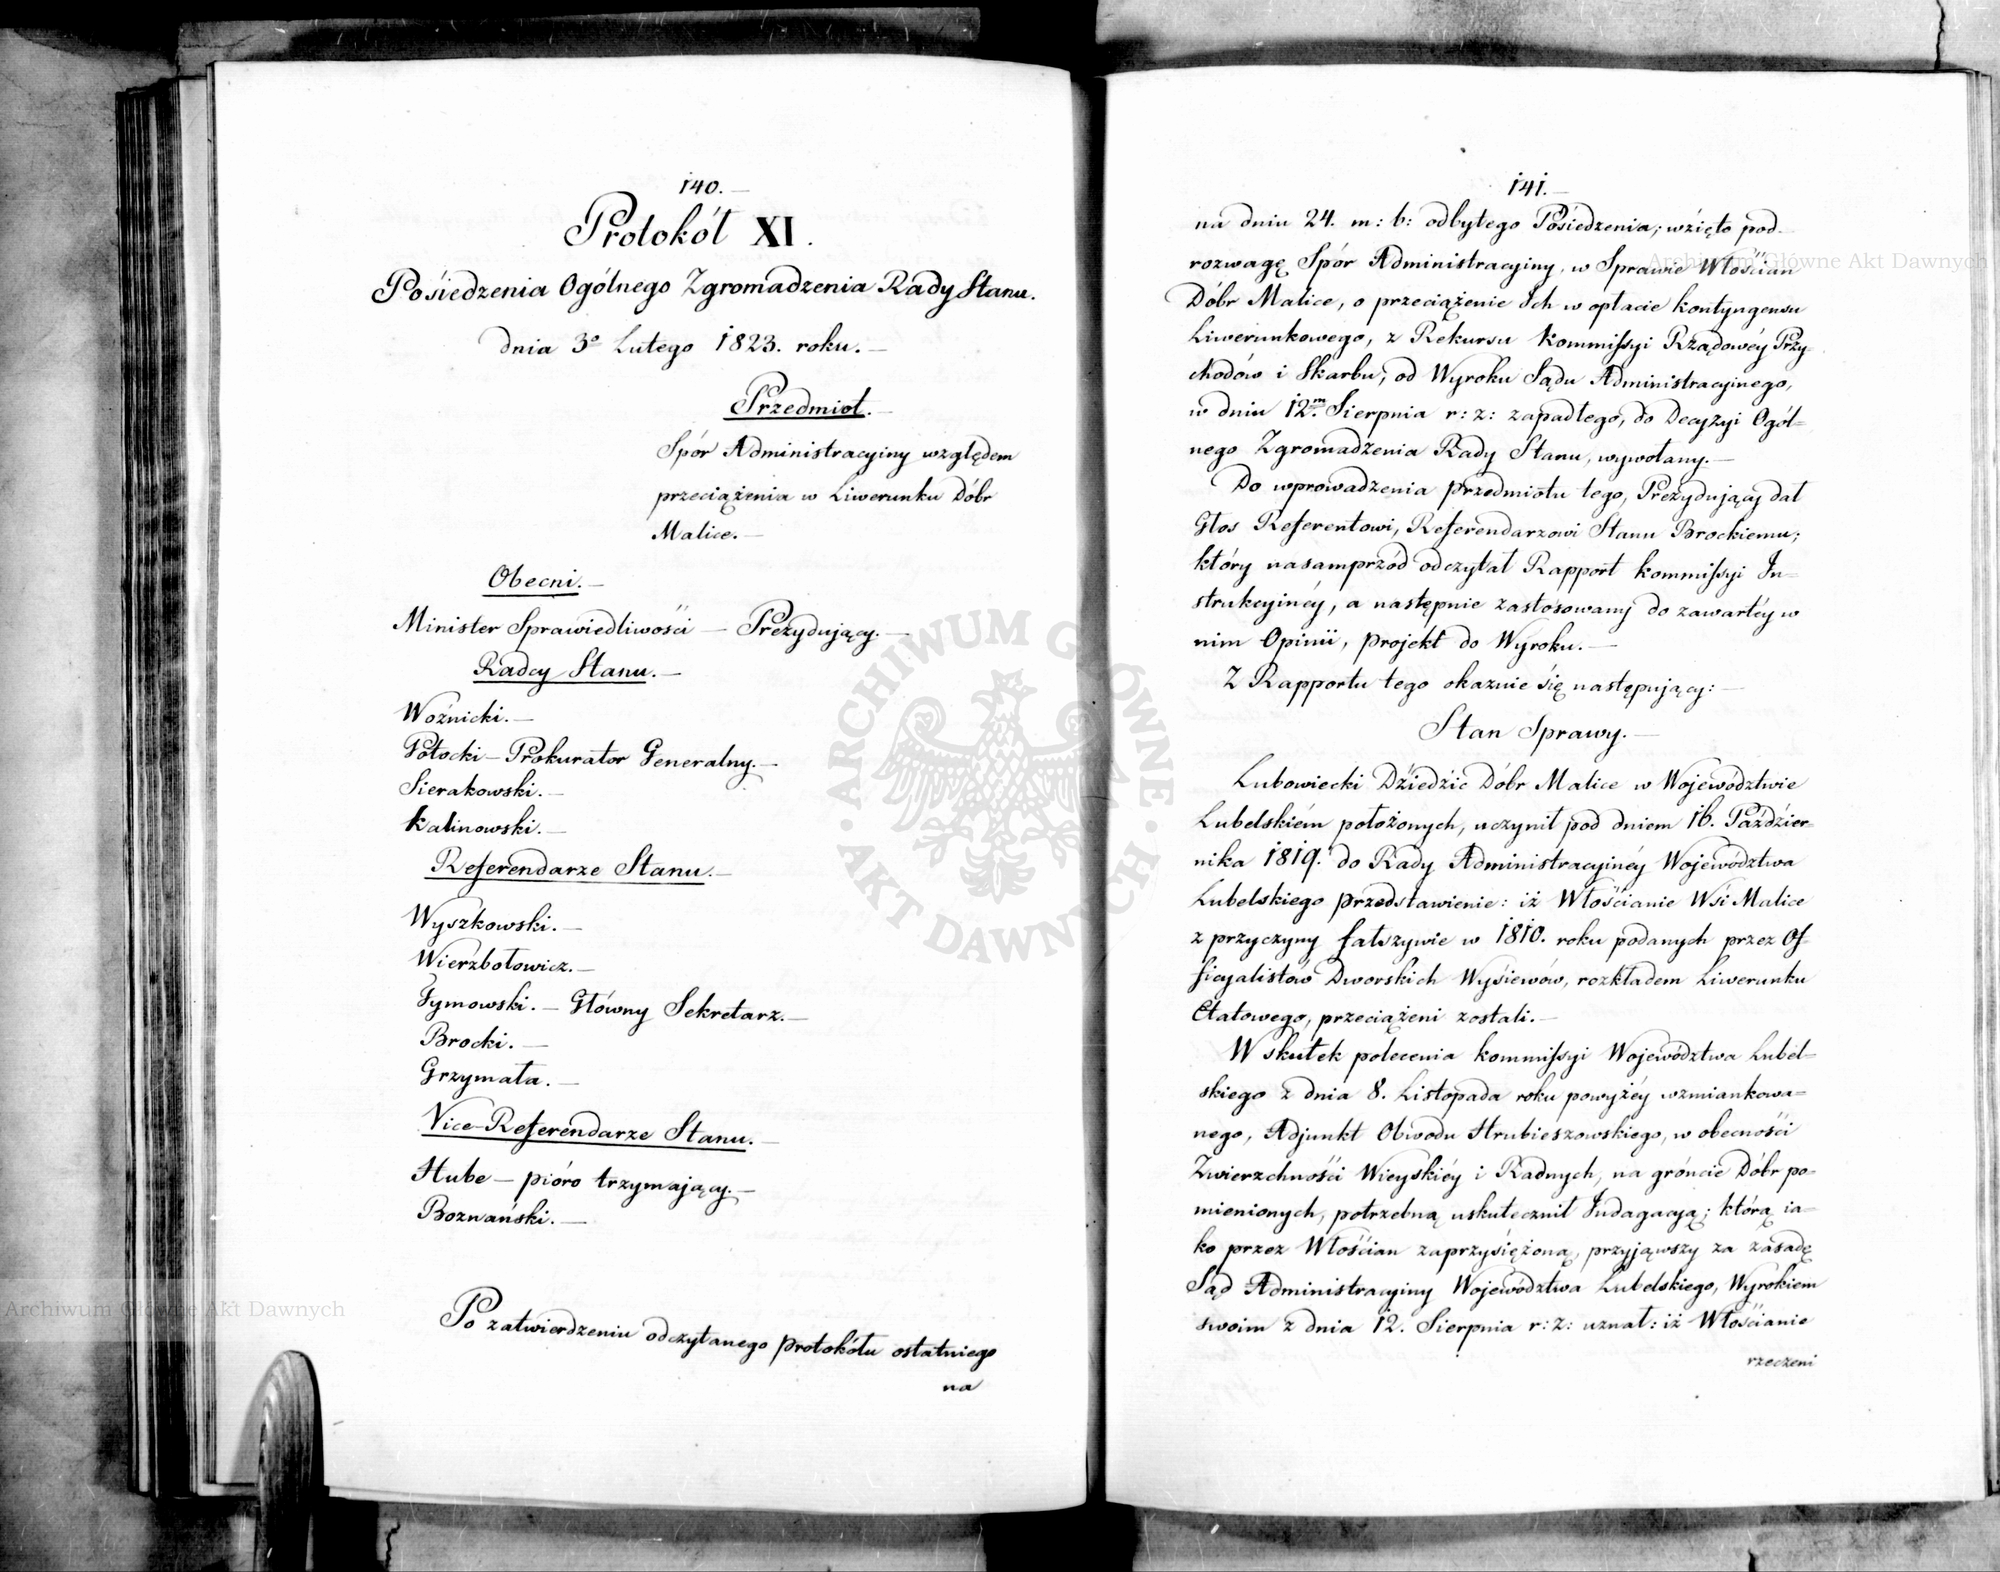 140.
Protokół XI.
Posiedzenia Ogólnego Zgromadzenia Rady Stanu.
dnia 3º Lutego 1823. roku.—
Przedmiot.—
Spór Administracyiny względem
przeciążenia w Liwerunku Dóbr
Malice.—
Obecni.—
Minister Sprawiedliwości — Prezydujący.—
Radcy Stanu.—
Woźnicki.—
Potocki — Prokurator Generalny.—
Sierakowski.—
Kalinowski.—
Referendarze Stanu.—
Wyszkowski.—
Wierzbołowicz.—
Tymowski.— Główny Sekretarz.—
Brocki.—
Grzymała.—
Vice-Referendarze Stanu.—
Hube — pióro trzymający.—
Boznański.—
Po zatwierdzeniu odczytanego protokółu ostatniego
na
141.—
na dniu 24. m: b: odbytego Posiedzenia; wzięto pod
rozwagę Spór Administracyiny, w Sprawie Włościan
Dóbr Malice, o przeciążenie Ich w opłacie kontyngensu
Liwerunkowego, z Rekursu Kommissyi Rządowéy Przy-
chodów i Skarbu, od Wyroku Sądu Administracyinego,
w dniu 12m. Sierpnia r: z: zapadłego, do Decyzyi Ogól=
nego Zgromadzenia Rady Stanu, wywołany.—
Do wprowadzenia przedmiotu tego, Prezydujący dał
Głos Referentowi, Referendarzowi Stanu Brockiemu;
który nasamprzód odczytał Rapport Kommissyi In=
strukcyinéy, a następnie zastosowany do zawartéy w
nim Opinii, projekt do Wyroku.—
Z Rapportu tego okazuie się następujący:—
Stan Sprawy.—
Lubowiecki Dziedzic Dóbr Malice w Województwie
Lubelskiém położonych, uczynił pod dniem 16. Paździer=
nika 1819. do Rady Administracyinéy Województwa
Lubelskiego przedstawienie: iż Włościanie Wsi Malice
z przyczyny fałszywie w 1810. roku podanych przez Of-
ficyalistów Dworskich Wysiewów, rozkładem Liwerunku
Etatowego, przeciążeni zostali.—
W skutek polecenia Kommissyi Województwa Lubel=
skiego z dnia 8. Listopada roku powyżéy wzmiankowa=
nego, Adjunkt Obwodu Hrubieszowskiego, w obecności
Zwierzchności Wieyskiéy i Radnych, na gróncie Dóbr po=
mienionych, potrzebną uskutecznił Indagacyą; którą ia=
ko przez Włościan zaprzysiężoną, przyjąwszy za zasadę
Sąd Administracyiny Województwa Lubelskiego, Wyrokiem
swoim z dnia 12. Sierpnia r: z: uznał: iż Włościanie
rzeczeni
ARCHIWUM GŁÓWNE AKT DAWNYCH
Archiwum Główne Akt Dawnych
Archiwum Główne Akt Dawnych